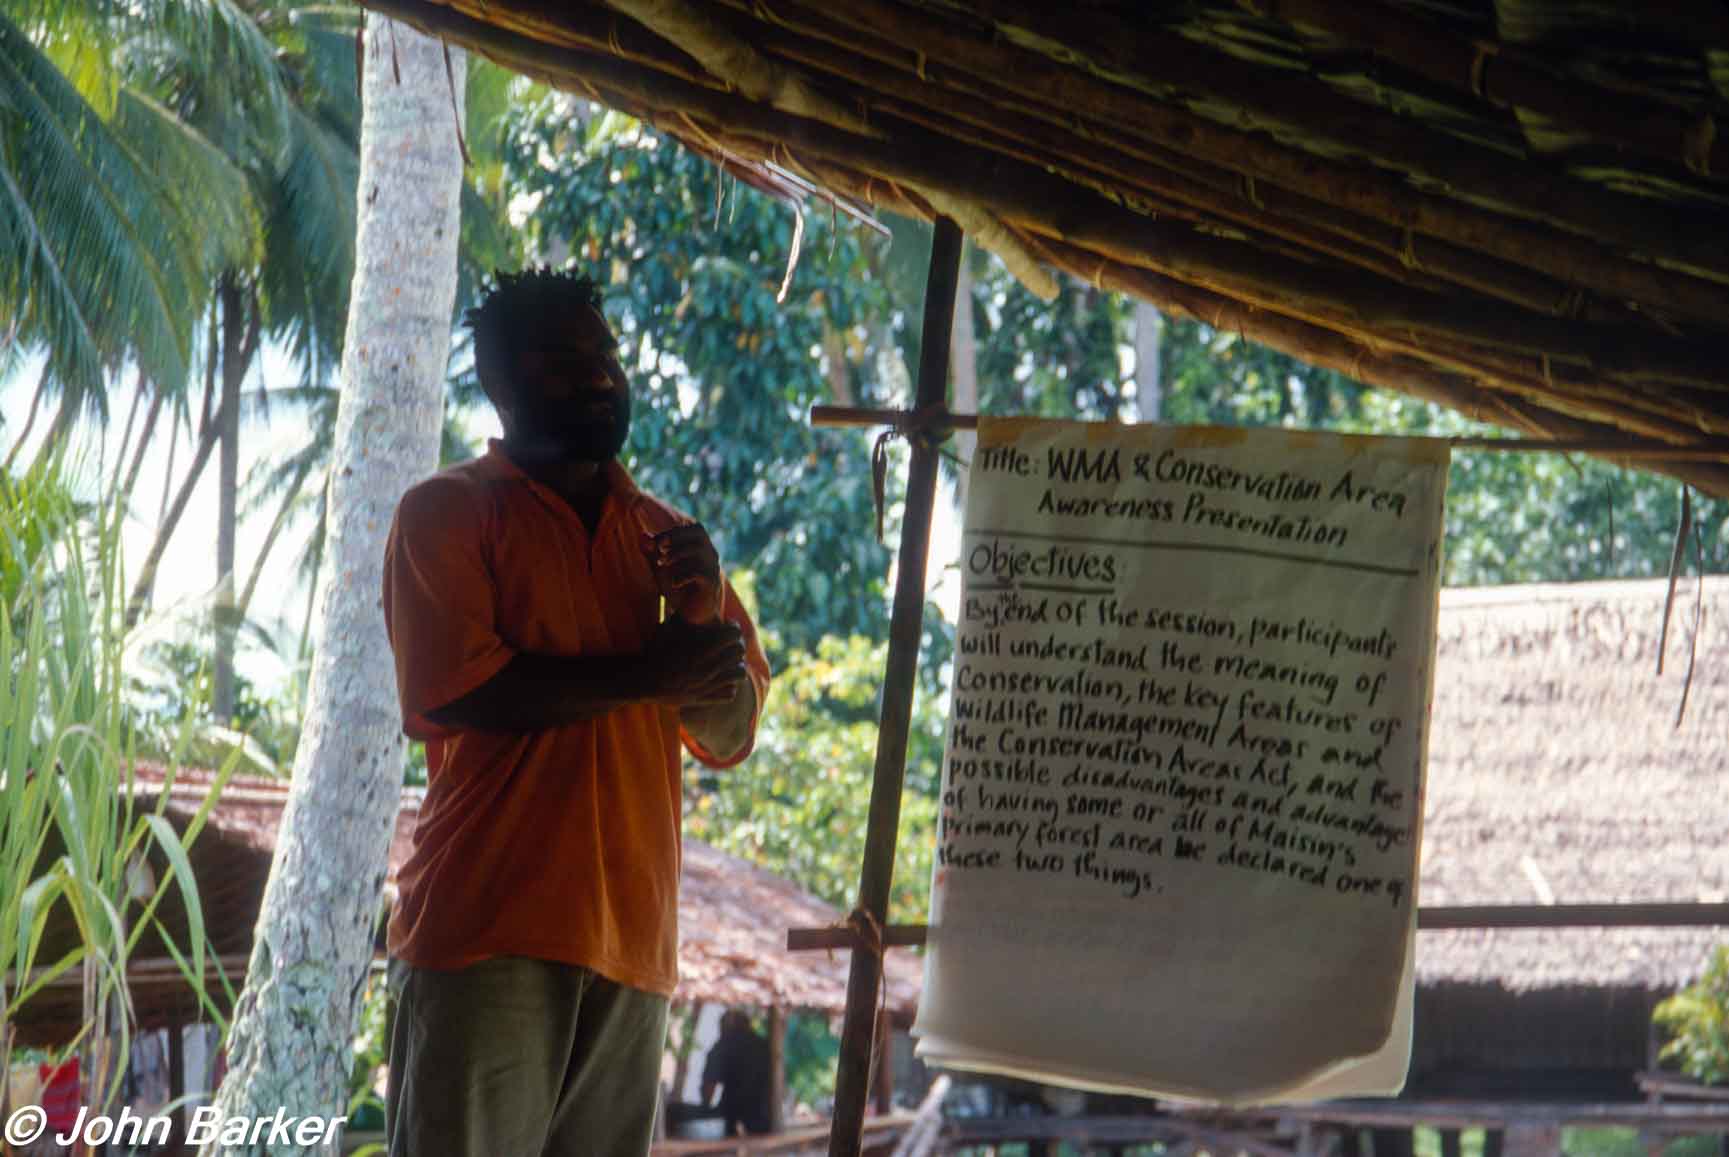 Title: WMA & Conservation Area
Awareness Presentation
Objectives
By the end of the session, participants
will understand the meaning of
Conservation, the key features of
Wildlife Management Areas and
the Conservation Areas Act, and the
possible disadvantages and advantages
of having some or all of Maisin's
primary forest area be declared one of
these two things.
© John Barker